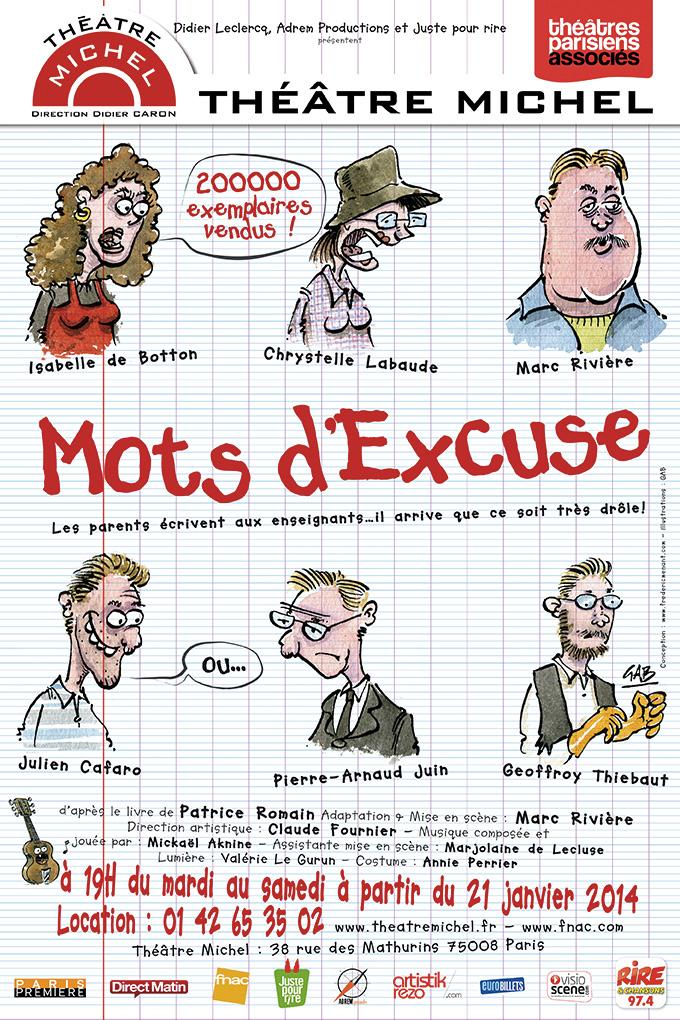 THÉÂTRE
MICHEL
DIRECTION DIDIER CARON
Didier Leclercq, Adrem Productions et Juste pour rire
présentent
théâtres
parisiens
associés
THÉÂTRE MICHEL
200000
exemplaires
vendus !
Isabelle de Botton
Chrystelle Labaude
Marc Rivière
Mots d'Excuse
Les parents écrivent aux enseignants...il arrive que ce soit très drôle!
Conception : www.fredericmenant.com - Illustrations : GAB
OU...
GAB
Julien Cafaro
Pierre-Arnaud Juin
Geoffroy Thiebaut
d'après le livre de Patrice Romain Adaptation & Mise en scène : Marc Rivière
Direction artistique : Claude Fournier - Musique composée et
jouée par : Mickaël Aknine - Assistante mise en scène : Marjolaine de Lecluse
Lumière : Valérie Le Gurun - Costume : Annie Perrier
à 19H du mardi au samedi à partir du 21 janvier 2014
Location : 01 42 65 35 02 www.theatremichel.fr - www.fnac.com
Théâtre Michel : 38 rue des Mathurins 75008 Paris
PARIS
PREMIERE
Direct Matin
fnac
Juste
pour
rire
ADREM
artistik
rezo
.com
euroBILLETS
visio
scene
RIRE
& CHANSONS
97.4